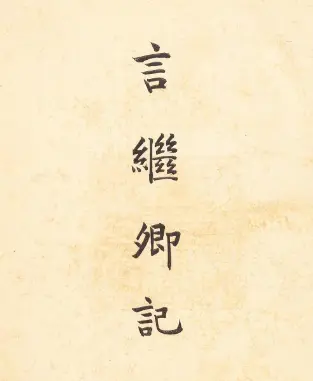 言繼卿記